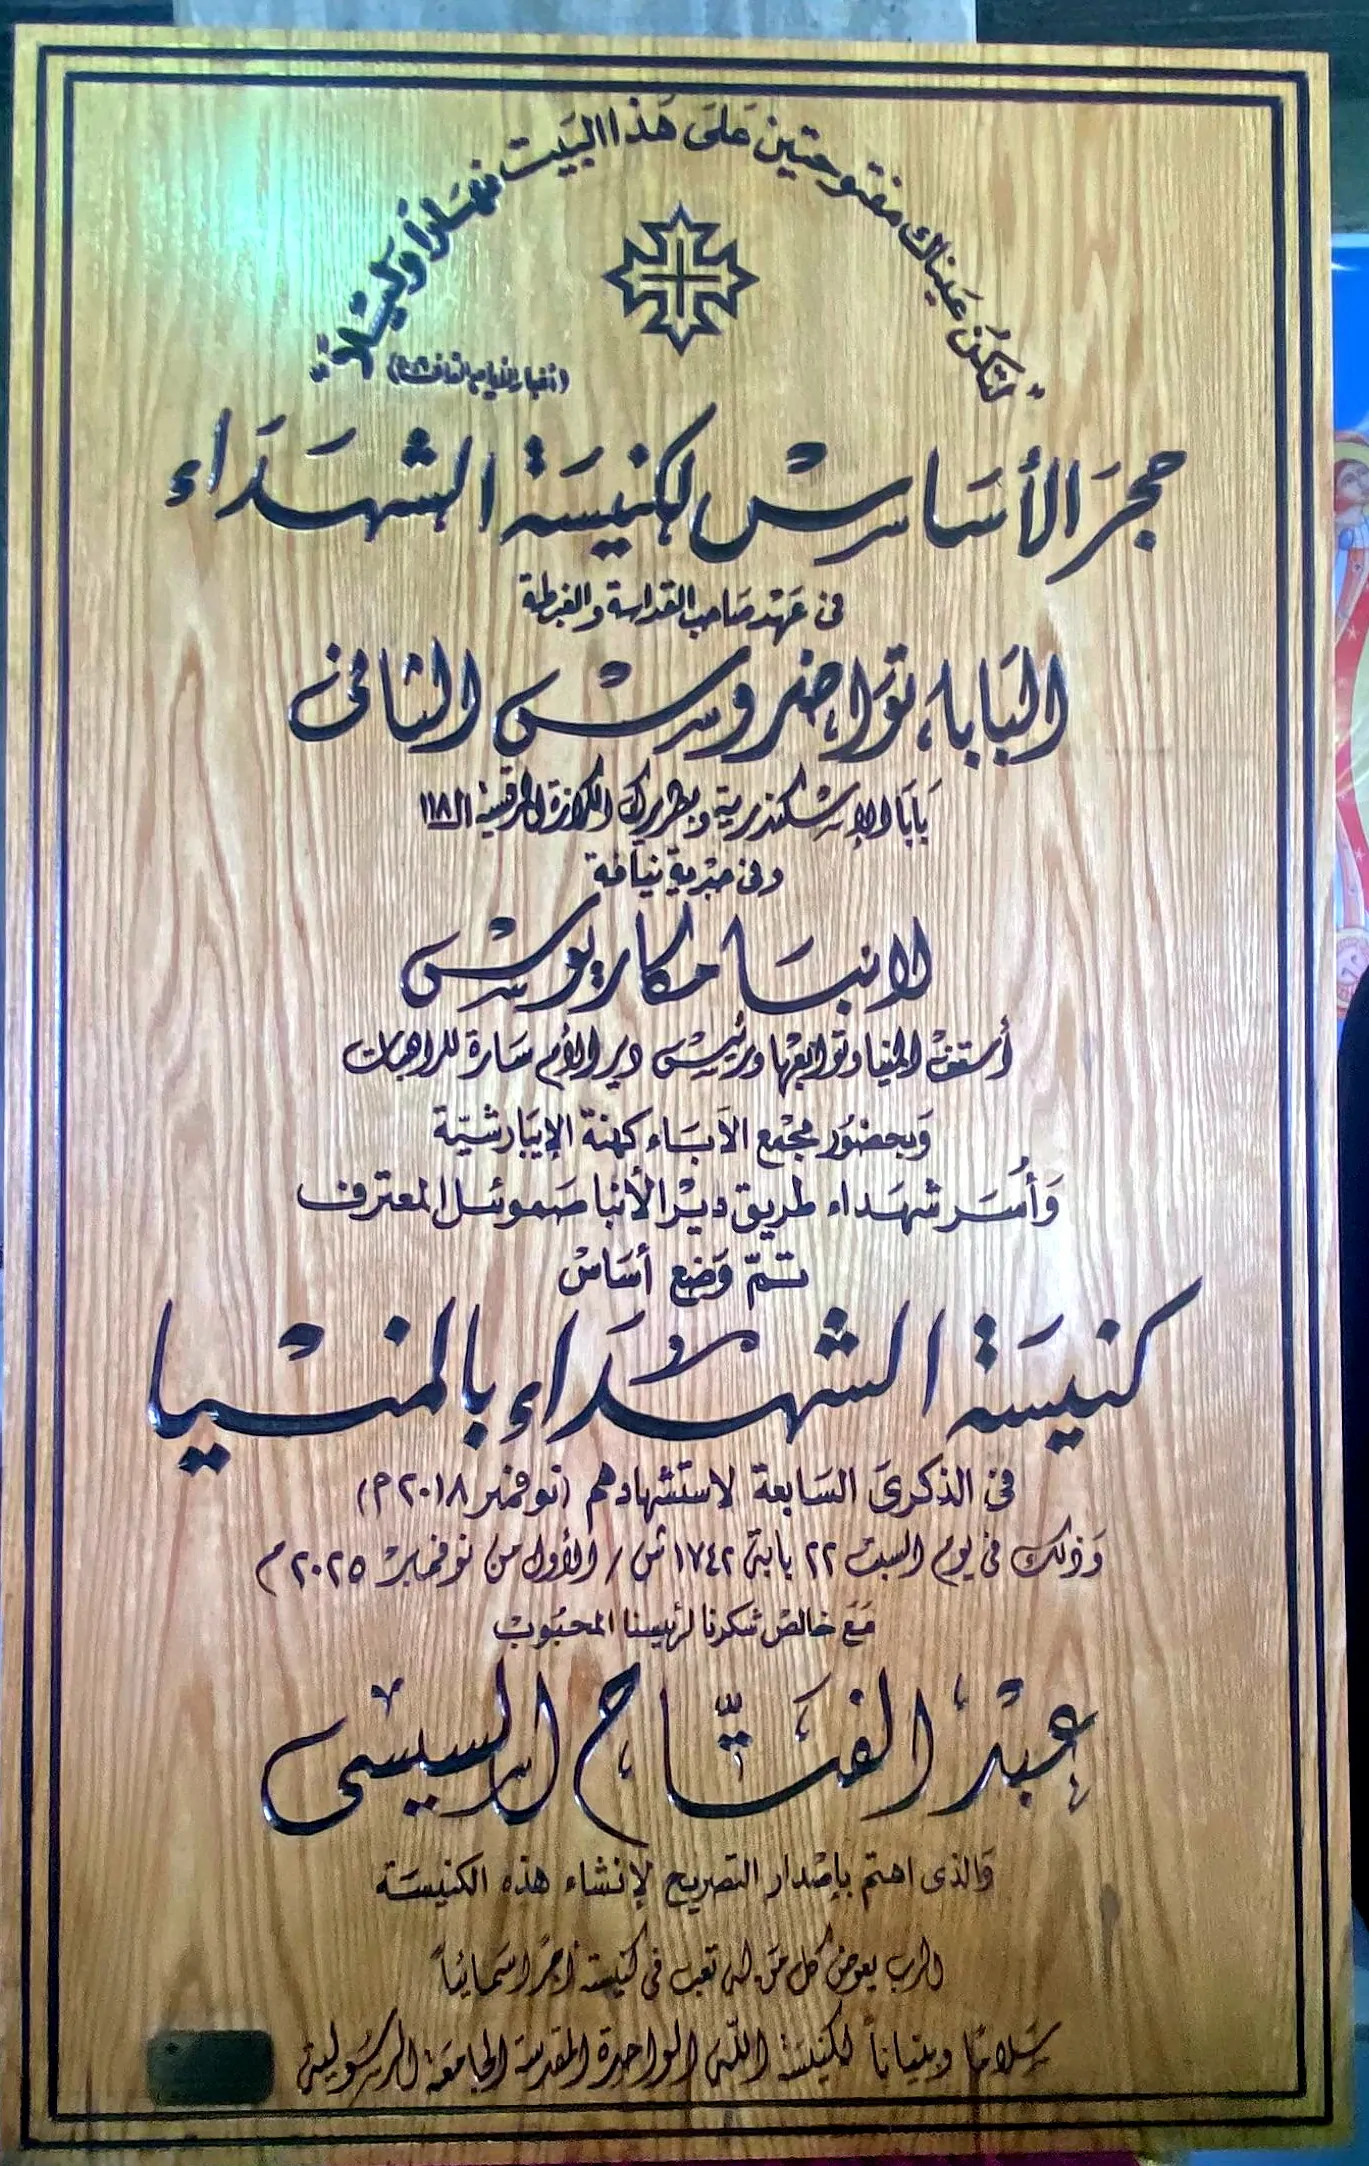 "لتكن عيناك مفتوحتين على هذا البيت نهارا وليلا"
(أخبار الأيام الثاني
حجر الأساس لكنيسة الشهداء
في عهد صاحب القداسة والغبطة
البابا تواضروس الثاني
بابا الإسكندرية وبطريرك الكرازة المرقسية الـ ١١٨
وفي حبرية نيافة
الانبا مكاريوس
أسقف المنيا وتوابعها ورئيس دير الأم سارة للراهبات
وبحضور مجمع الآباء كهنة الإيبارشية
وأسر شهداء طريق دير الأنبا صموئيل المعترف
تم وضع أساس
كنيسة الشهداء بالمنيا
في الذكرى السابعة لاستشهادهم (نوفمبر ٢٠١٨ م)
وذلك في يوم السبت ٢٢ بابة ١٧٤٢ ش / الأول من نوفمبر ٢٠٢٥ م
مع خالص شكرنا لرئيسنا المحبوب
عبد الفتاح السيسى
والذى اهتم بإصدار التصريح لإنشاء هذه الكنيسة
الرب يعوض كل من له تعب في كنيسته أجرا سمائيا
سلاما وبنيانا لكنيسة الله الواحدة المقدسة الجامعة الرسولية